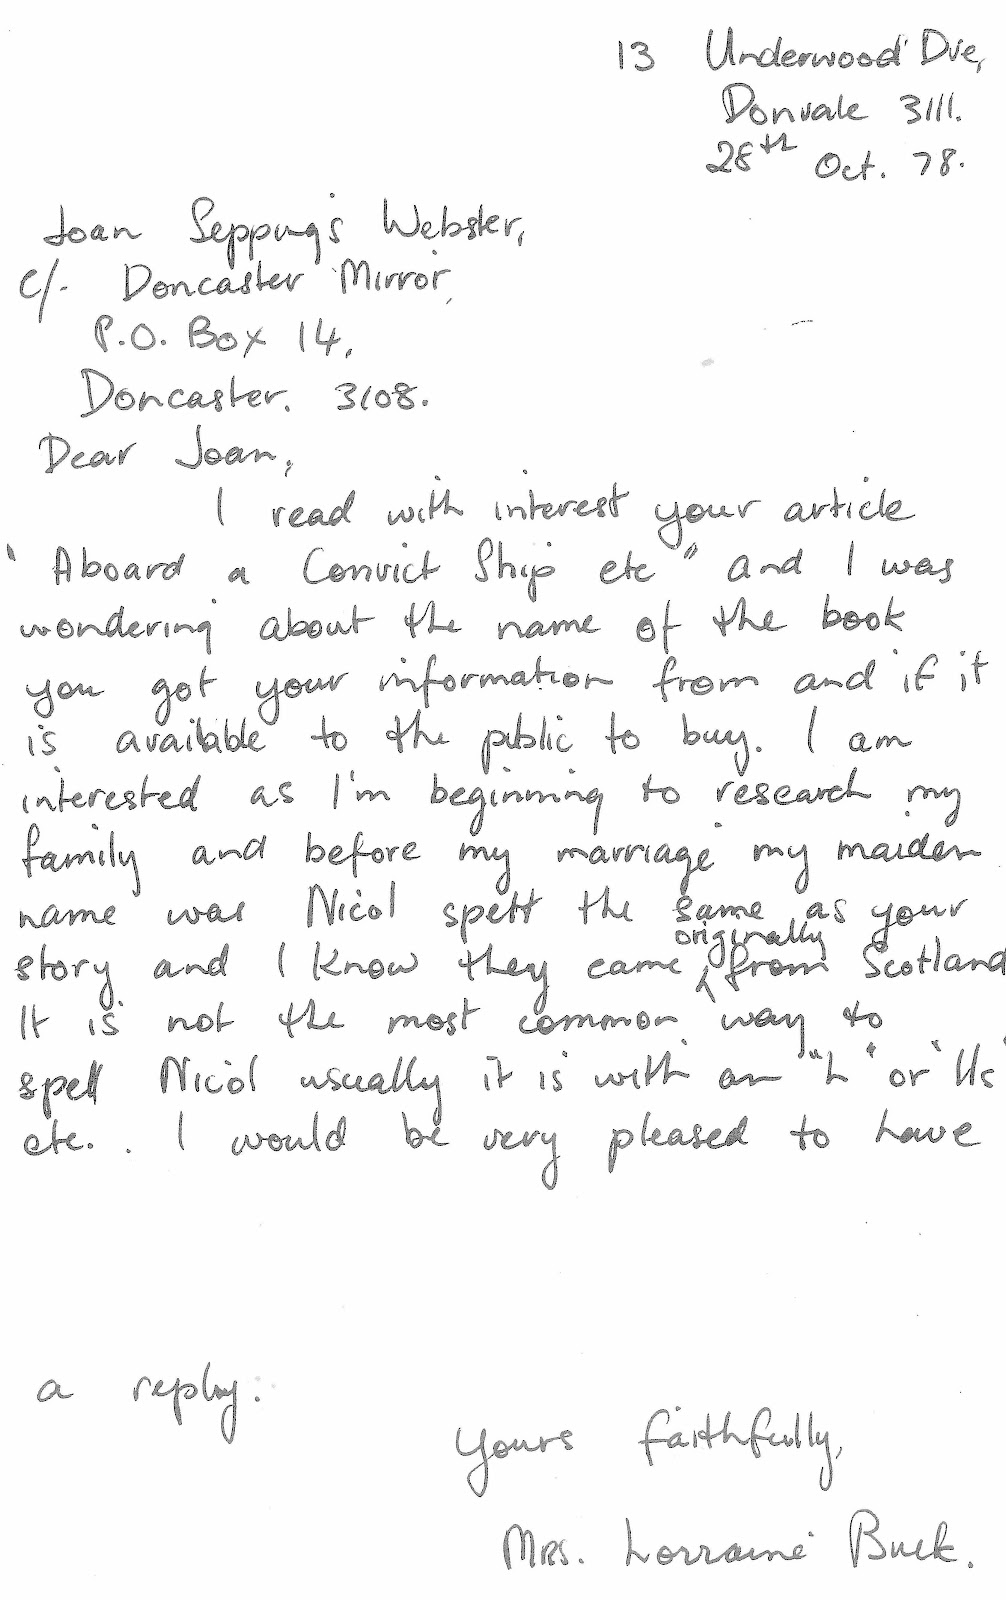 13 Underwood Dve,
Donvale 3111.
28th Oct. 78.
Joan Seppings Webster,
c/. Doncaster Mirror,
P.O. Box 14,
Doncaster. 3108.
Dear Joan,
I read with interest your article
"Aboard a Convict Ship etc" and I was
wondering about the name of the book
you got your information from and if it
is available to the public to buy. I am
interested as I'm beginning to research my
family and before my marriage my maiden
name was Nicol spelt the same as your
story and I know they came originally from Scotland
It is not the most common way to
spell Nicol usually it is with an "h" or "lls"
etc. . I would be very pleased to have
a reply.
Yours faithfully,
Mrs. Lorraine Buck.